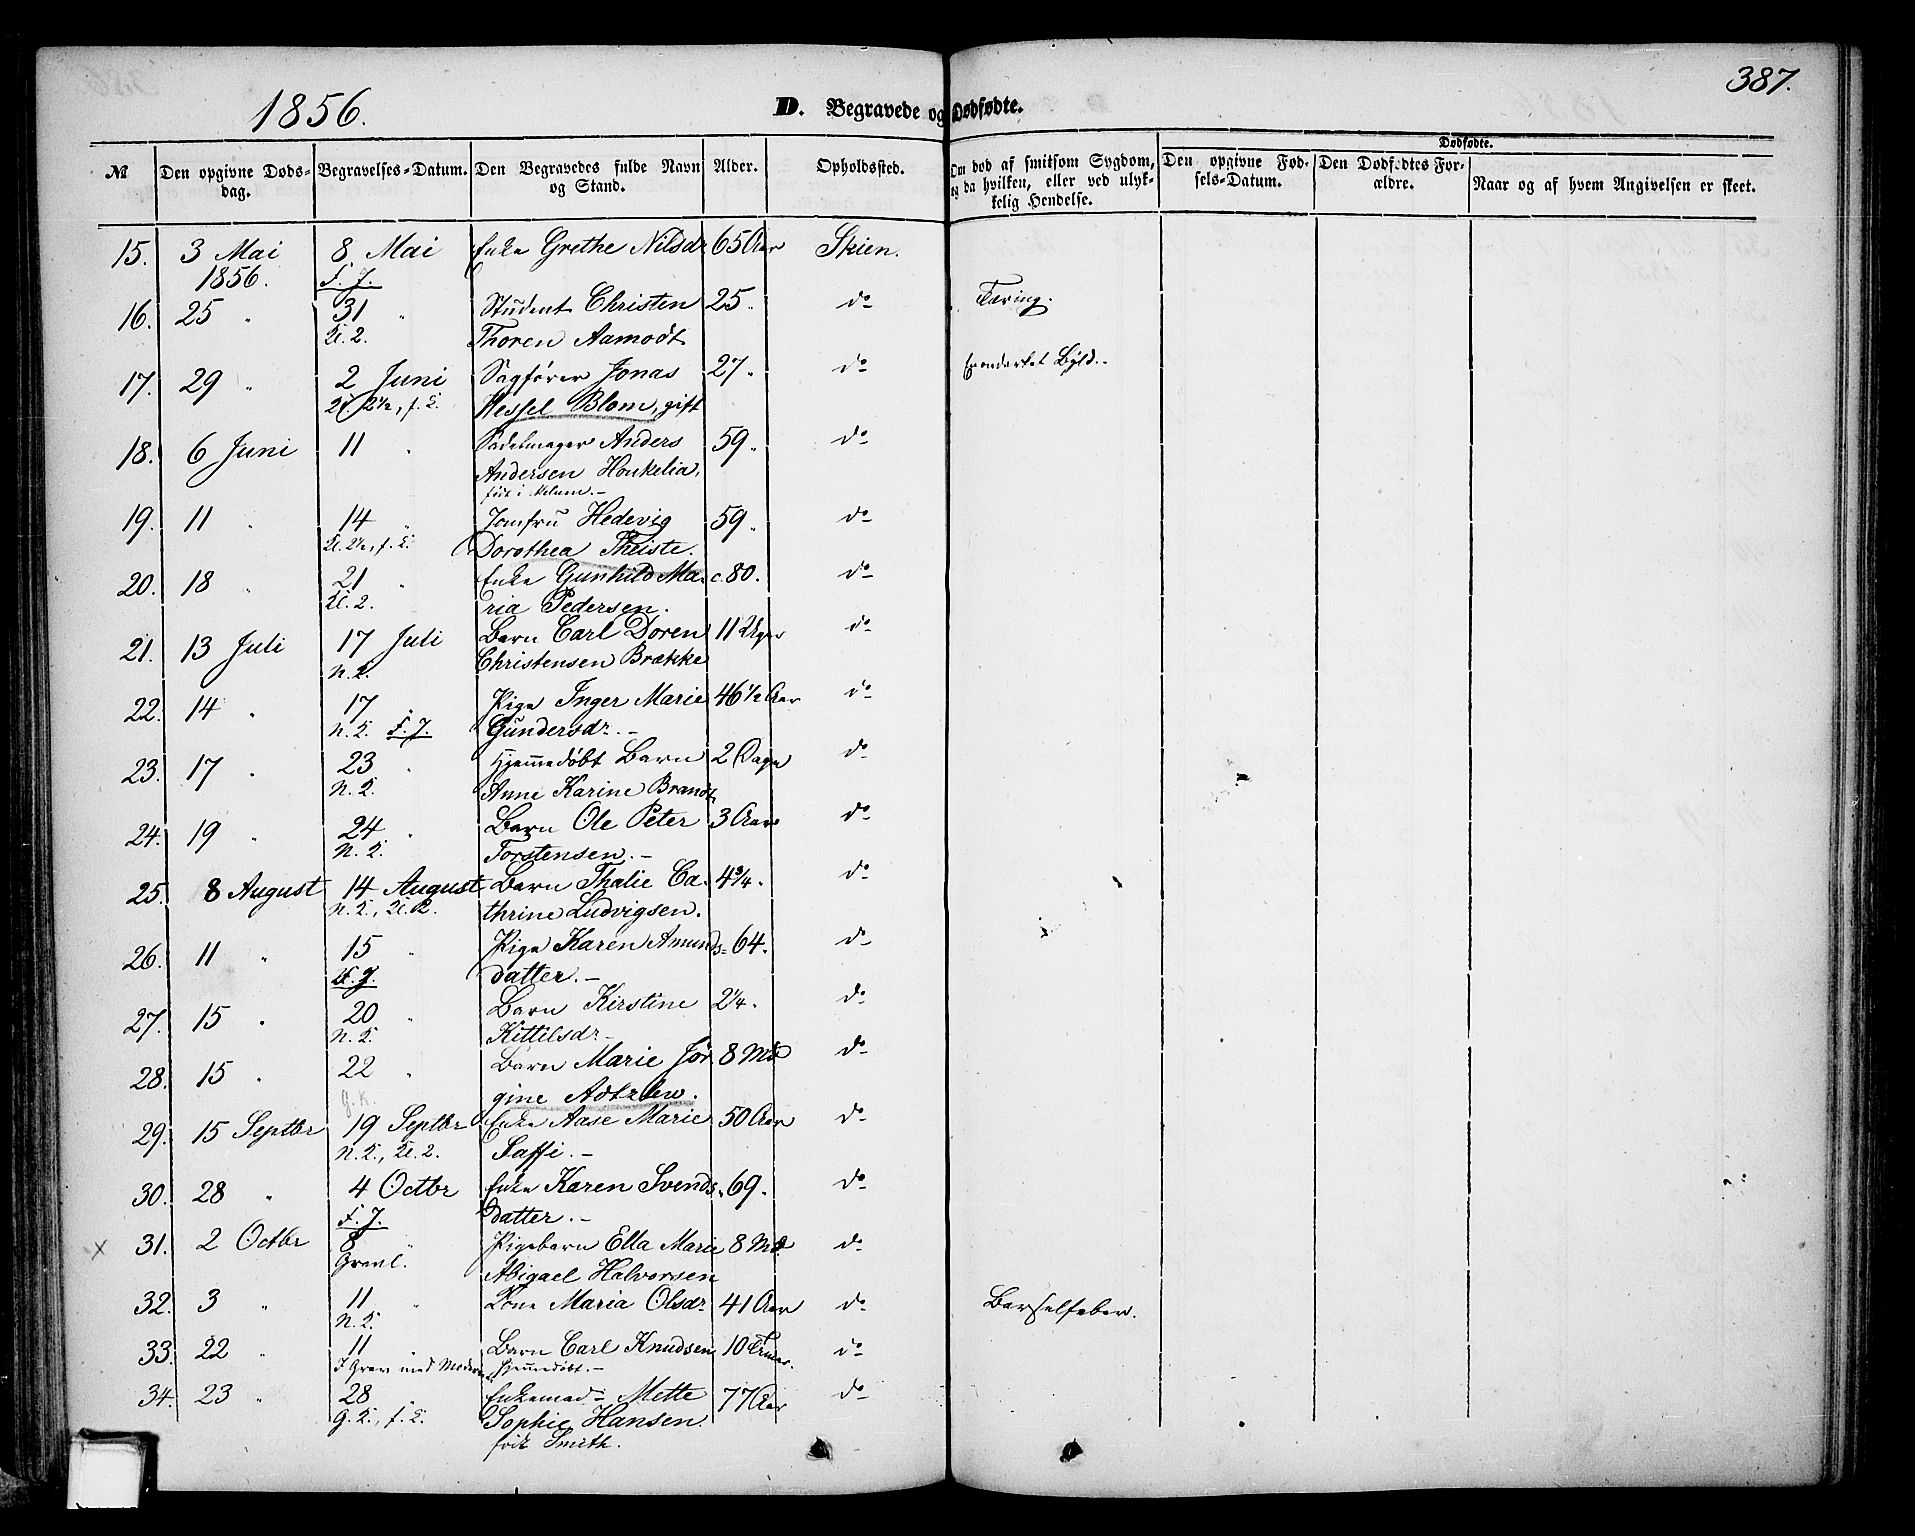 387.
1856.
D. Begravede og Dødfødte.
№
Den opgivne Døds-
dag.
Begravelses-Datum.
Den Begravedes fulde Navn
og Stand.
Alder.
Opholdssted.
Om død af smitsom Sygdom,
og da hvilken, eller ved ulyk-
kelig Hendelse.
Dødfødte.
Den opgivne Fød-
sels-Datum.
Den Dødfødtes For-
ældre.
Naar og af hvem Angivelsen er skeet.
15. 3 Mai 8 Mai Enke Grethe Nilsdr 65 Aar Skien.
1856. F. J.
16. 25 " 31 " Student Christen 25 " do Tæring.
Kl. 2. Thoren Aamodt
17. 29 " 2 Juni Sagfører Jonas 27 " do Byld.
Kl. 2½, f. K. Wessel Blom, gift
18. 6 Juni 11 " Sadelmager Anders 59 " do
Andersen Houkelia,
født i Melum.-
19. 11 " 14 " Jomfru Hedevig 59 " do
Kl. 2½, f. K. Dorothea Theiste.
20. 18 " 21 " Enke Gunhild Ma- c. 80. do
Kl. 2. ria Pedersen.
21. 13 Juli 17 Juli Barn Carl Doren 11 Uger do
Christensen Brække
22. 14 " 17 " Pige Inger Marie 46½ Aar do
N. K. F. J. Gundersdr.-
23. 17 " 23 " Hjemmedøbt Barn 2 Dage do
N. K. Anne Karine Brandt
24. 19 " 24 " Barn Ole Peter 3 Aar do
N. K. Torstensen.-
25. 8 August 14 August Barn Thalie Ca- 4¾. do
N. K., Kl. 2. thrine Ludvigsen.
26. 11 " 15 " Pige Karen Amunds- 64. do
F. J. datter.-
27. 15 " 20 " Barn Kirstine 2¼. do
N. K. Kittilsdr-
28. 15 " 22 " Barn Marie Jør- 8 Md do
G. K. gine
29. 15 Septbr 19 Septbr Enke Aase Marie 50 Aar do
N. K., Kl. 2. Saffi.-
30. 28 " 4 Octbr Enke Karen Svends- 69. do
F. J. datter.-
x 31. 2 Octbr 8 " Pigebarn Ella Marie 8 Md. do
Gravl. Abigael Halvorsen
32. 3 " 11 " Kone Maria Olsdr 41 Aar do Barselfeber.
N. K.
33. 22 " 11 " Barn Carl Knudsen 10 Timer. do
I Grav med Moderen Hjemmedøbt.-
34. 23 " 28 " Enkemad- Mette 77 Aar do
G. K., f. K. Sophie Hansen
født Smith.